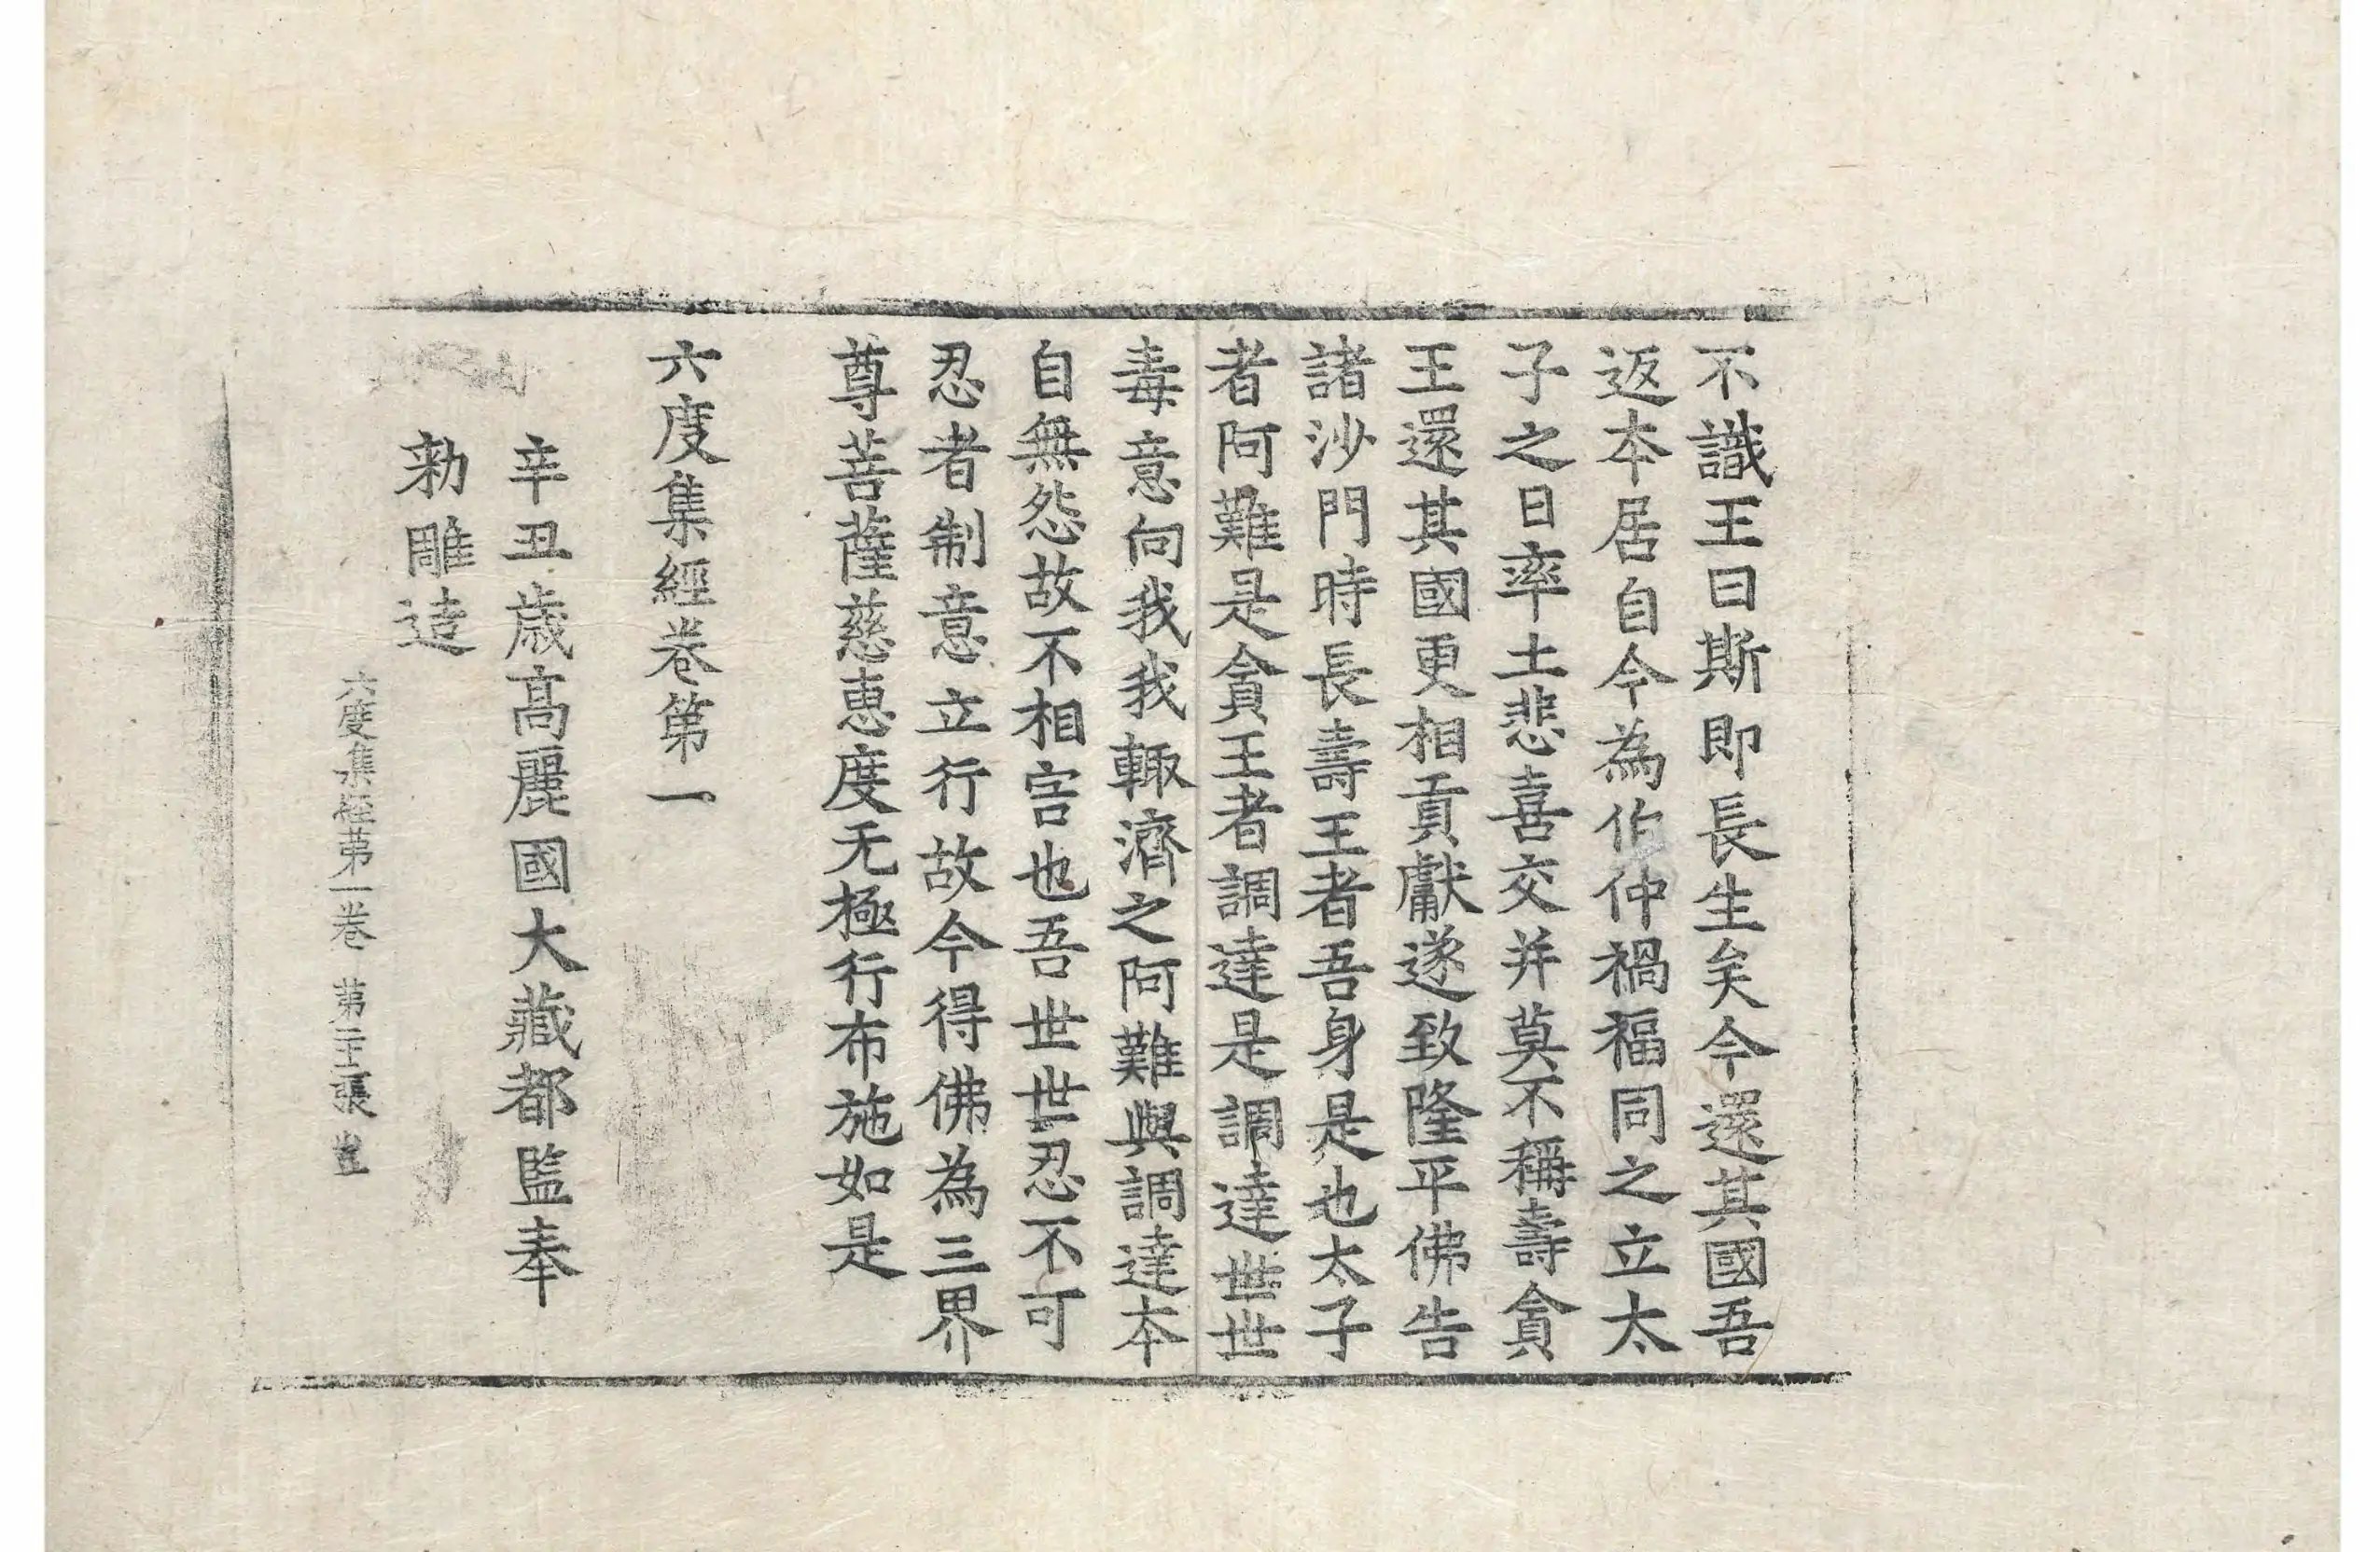 不識王曰斯即長生矣今還其國吾
返本居自今為作仲禍福同之立太
子之日率土悲喜交并莫不稱壽貪
王還其國更相貢獻遂致隆平佛告
諸沙門時長壽王者吾身是也太子
者阿難是貪王者調達是調達世世
毒意向我我輙濟之阿難與調達本
自無怨故不相害也吾世世忍不可
忍者制意立行故今得佛為三界
尊菩薩慈惠度无極行布施如是
六度集經卷第一
辛丑歲高麗國大藏都監奉
勑雕造
六度集經第一卷 第二十二張